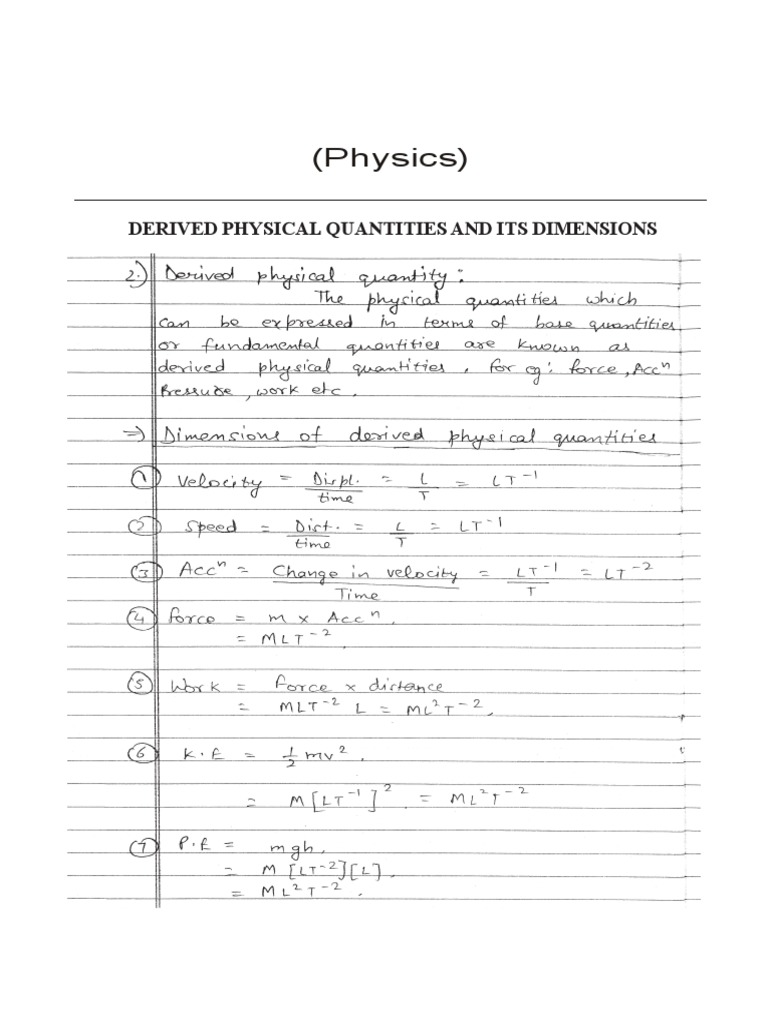 (Physics)
DERIVED PHYSICAL QUANTITIES AND ITS DIMENSIONS
2.) Derived physical quantity :
The physical quantities which
can be expressed in terms of base quantities
or fundamental quantities are known as
derived physical quantities, for eg: force, Accⁿ
Pressure, work etc.
⇒) Dimensions of derived physical quantities
① Velocity = Displ./time = L/T = LT⁻¹
② Speed = Dist./time = L/T = LT⁻¹
③ Accⁿ = Change in velocity/Time = LT⁻¹/T = LT⁻²
④ force = m × Accⁿ.
= MLT⁻².
⑤ Work = force × distance
= MLT⁻² L = ML²T⁻².
⑥ K.E = 1/2 mv².
= M[LT⁻¹]². = ML²T⁻²
⑦ P.E = mgh.
= M [LT⁻²][L].
= ML²T⁻².